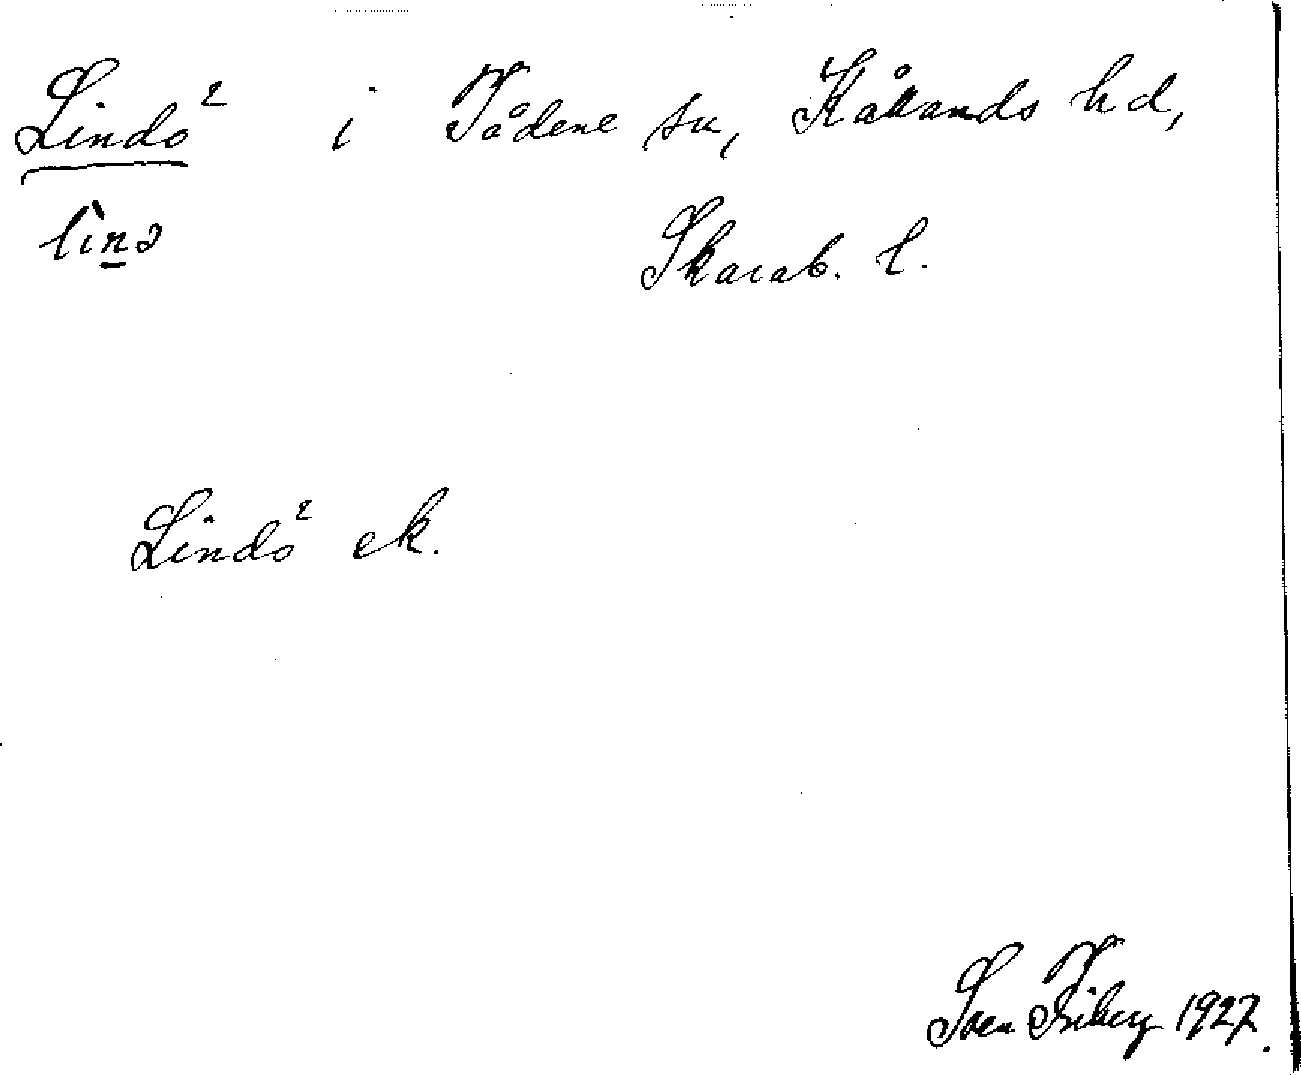 Lindö² i Tådene sn, Kållands hd,
lìnə Skarab. l.
Lindö² ek.
Sven Friberg 1927.